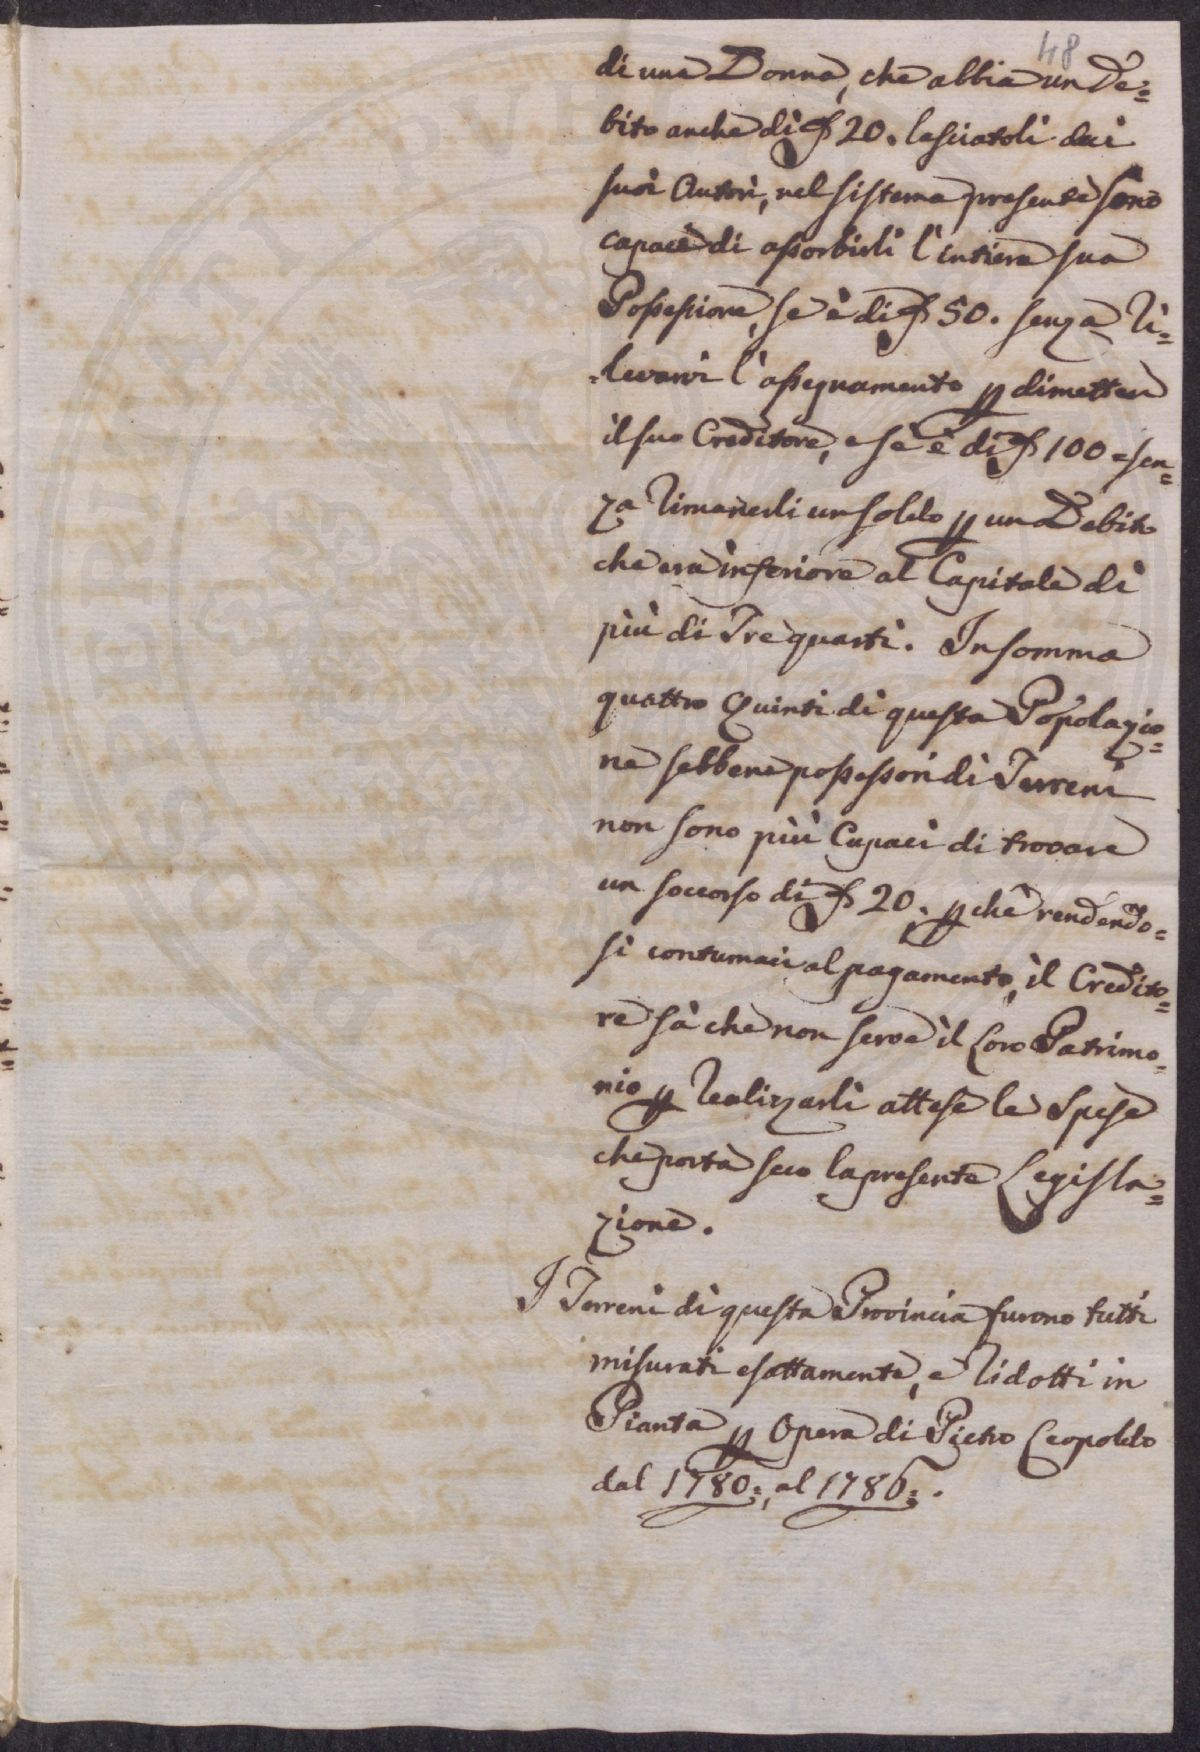 48
di una Donna, che abbia un De=
bito anche di ₰ 20. lasciatoli dai
suoi Autori, nel sistema presente sono
capaci di assorbirli l'intiera sua
Possessione, se è di ₰ 50. senza ri=
=levarvi l'assegnamento p dimetter
il suo Creditore, e se è di ₰ 100 = sen=
za rimanerli un soldo p un Debito
che era inferiore al Capitale di
più di Tre quarti. Insomma
quattro Quinti di questa Popolazio=
ne sebbene possessori di Terreni
non sono più Capaci di trovare
un soccorso di ₰ 20. pchè rendendo=
si contumaci al pagamento, il Credito=
re sà che non serve il loro Patrimo=
nio p realizzarli attese le Spese
che porta seco la presente Legisla=
zione.
I Terreni di questa Provincia furono tutti
misurati esattamente, e ridotti in
Pianta p Opera di Pietro Leopoldo
dal 1780:, al 1786:.